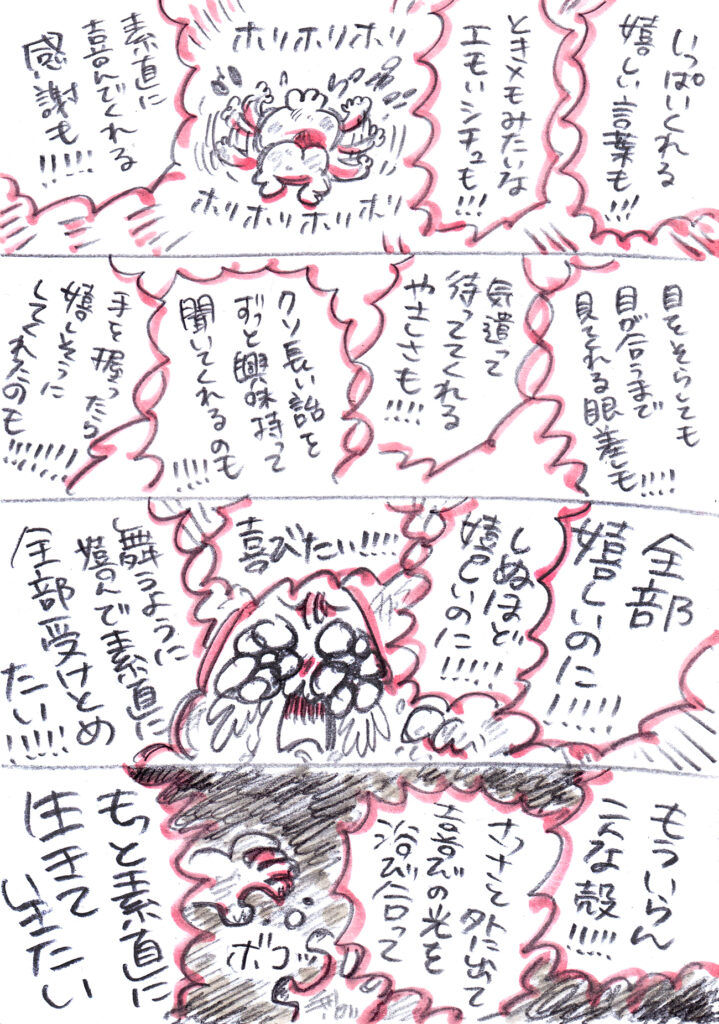 いっぱいくれる
嬉しい言葉も!!!
ときメモみたいな
エモいシチュも!!!
ホリホリホリ
ホリホリホリホリ
素直に
喜んでくれる
感謝も!!!!!
目をそらしても
目が合うまで
見てれる眼差しも!!!!
気遣って
待っててくれる
やさしさも!!!!
クソ長い話を
ずっと興味持って
聞いてくれるのも
!!!!
手を握ったら
嬉しそうに
してくれたのも!!!!!!
全部
嬉しいのに!!!!!
しぬほど
嬉しいのに!!!!!
喜びたい!!!!
舞うように
喜んで素直に
全部受けとめ
たい!!!!!
もういらん
こんな殻!!!!!
さっさと外に出て
喜びの光を
浴び合って
ボコッ
もっと素直に
生きて
いきたい